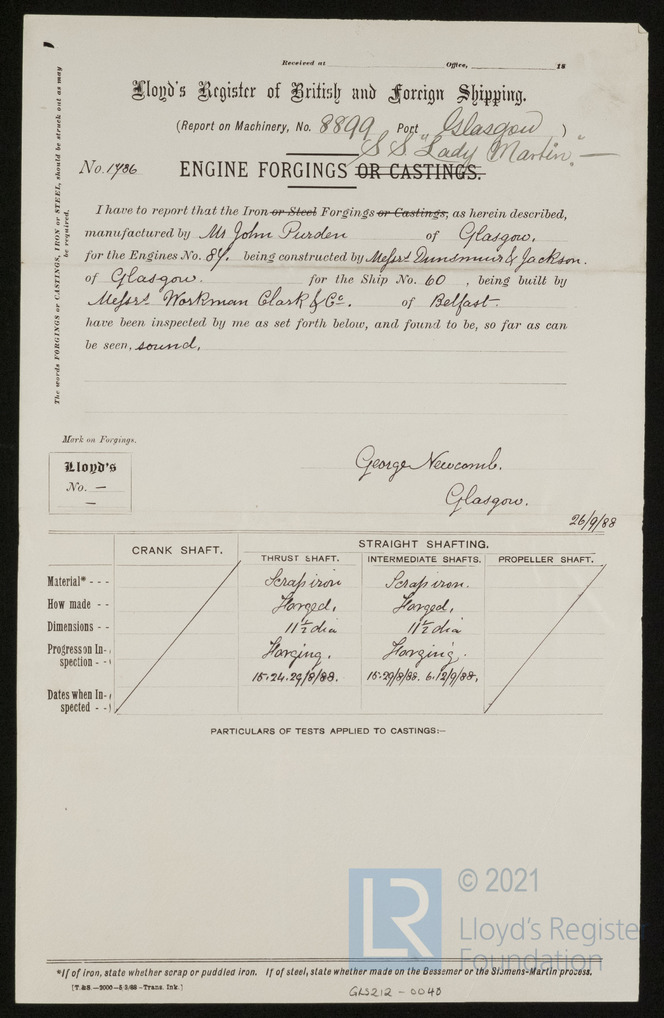 Received at Office, 18
Lloyd's Register of British and Foreign Shipping.
(Report on Machinery, No. 8899 Port Glasgow )
S S "Lady Martin". —
No. 1736 ENGINE FORGINGS OR CASTINGS.
The words FORGINGS or CASTINGS, IRON or STEEL, should be struck out as may be required.
I have to report that the Iron or Steel Forgings or Castings, as herein described,
manufactured by Mr John Purden of Glasgow.
for the Engines No. 84. being constructed by Messrs Dunsmuir & Jackson.
of Glasgow. for the Ship No. 60 , being built by
Messrs. Workman Clark & Co. of Belfast.
have been inspected by me as set forth below, and found to be, so far as can
be seen, sound.
Mark on Forgings.
Lloyd's
No. —
—
George Newcomb.
Glasgow.
26/9/88
CRANK SHAFT. STRAIGHT SHAFTING.
THRUST SHAFT. INTERMEDIATE SHAFTS. PROPELLER SHAFT.
Material* - - - Scrap iron Scrap iron.
How made - - Forged, Forged,
Dimensions - - 11½ dia 11½ dia
Progress on In- Forging. Forging.
spection - -
15.24.29/8/88. 15.29/8/88. 6.12/9/88.
Dates when In-
spected - -
PARTICULARS OF TESTS APPLIED TO CASTINGS:–
© 2021
LR
Lloyd's Register
Foundation
*If of iron, state whether scrap or puddled iron. If of steel, state whether made on the Bessemer or the Siemens-Martin process.
[T.&S.—2000—5/3/88—Trans. Ink.]
GLS212 - 0040